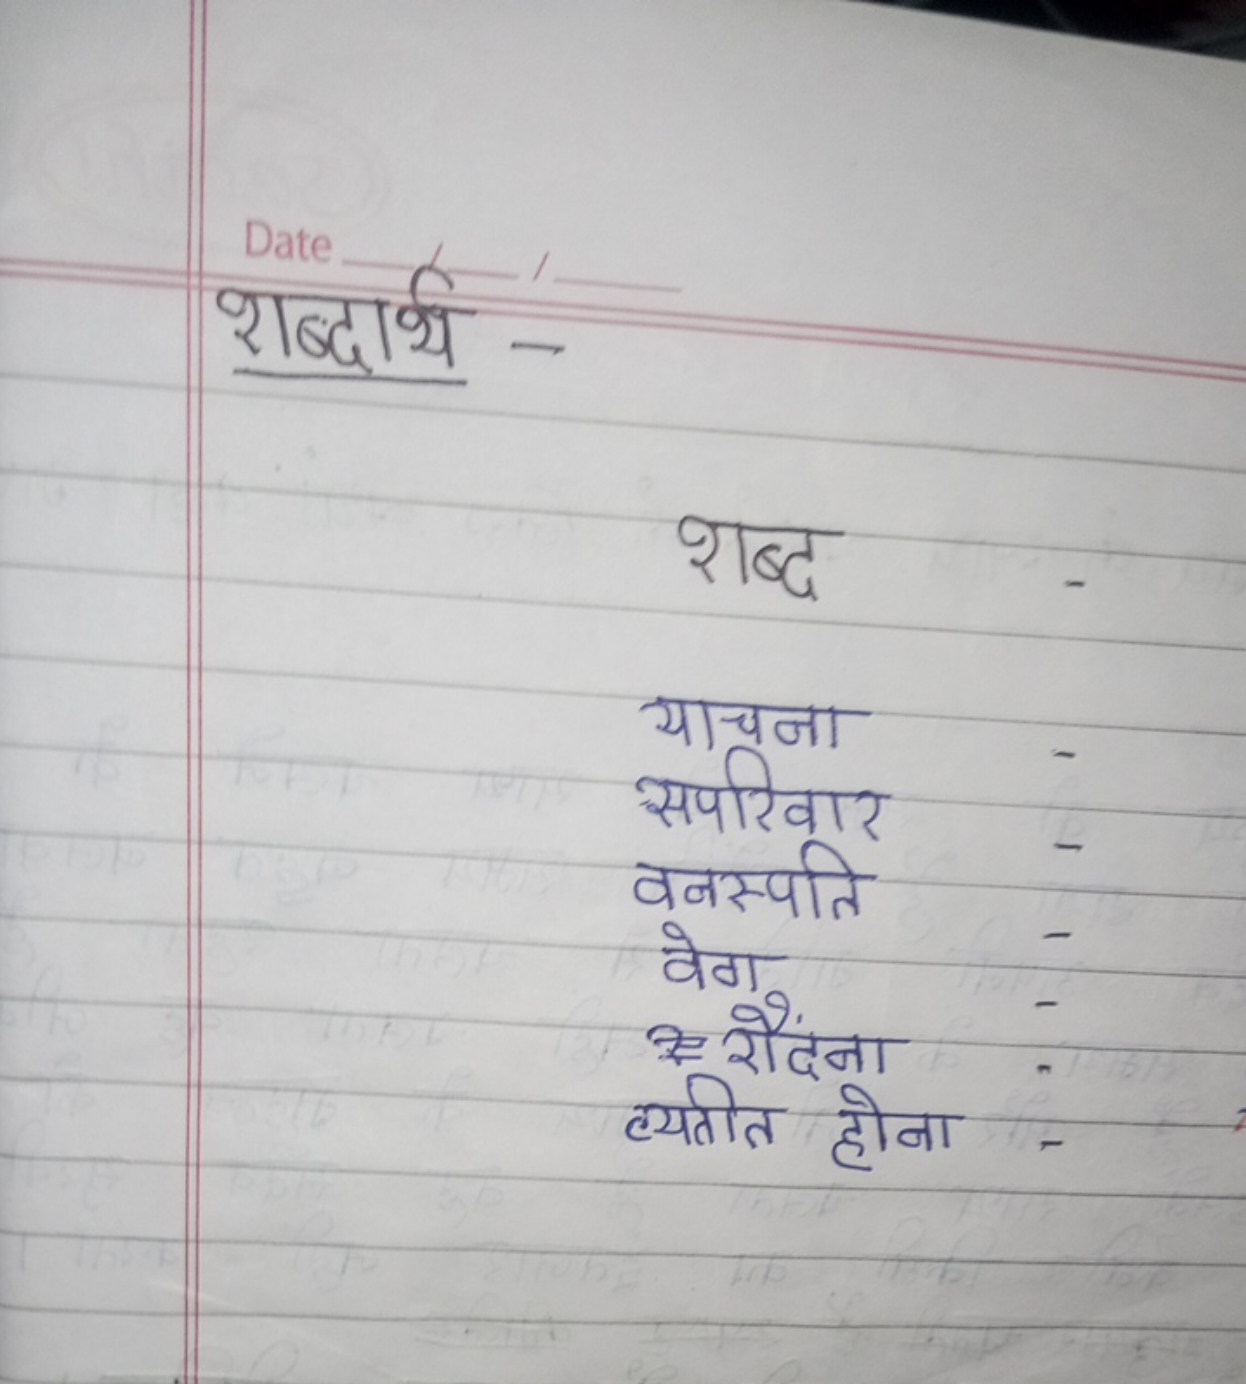 Date ___/___/___
शब्दार्थ –
शब्द -
याचना -
सपरिवार -
वनस्पति -
वेग -
रौंदना -
व्यतीत होना -